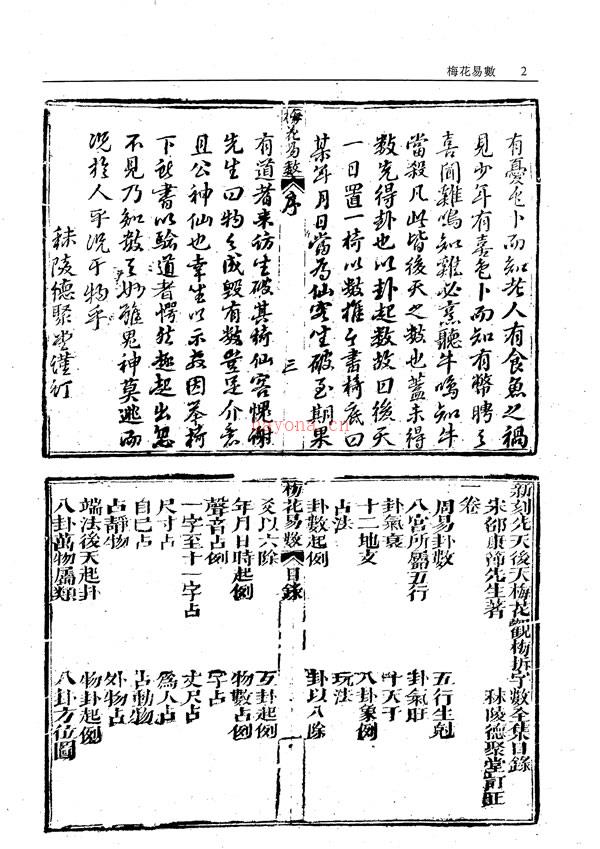 梅花易數 2
有憂色卜而知老人有食魚之禍
見少年有喜色卜而知有幣聘之
喜聞雞鳴知雞必烹聽牛鳴知牛
當殺凡此皆後天之數也蓋未得
數先得卦也以卦起數故曰後天
一日置一椅以數推之書椅底曰
某年月日當為仙客坐破至期果
梅花易數 序 三
有道者来訪坐破其椅仙客愧謝
先生曰物之成毀有數豈足介意
且公神仙也幸坐以示教因舉椅
下所書以驗道者愕然趨起出忽
不見乃知數之妙雖鬼神莫逃而
况於人乎况于物乎
秣陵德聚堂謹訂
新刻先天後天梅花觀梅拆字數全集目錄
宋邵康節先生著 秣陵德聚堂訂正
一卷
周易卦數 五行生剋
八宮所屬五行 卦氣旺
卦氣衰 十天干
十二地支 八卦象例
占法 玩法
卦數起例 卦以八除
梅花易數 目錄
爻以六除 互卦起例
年月日時起例 物數占例
聲音占例 字占
一字至十一字占 丈尺占
尺寸占 為人占
自己占 占動物
占靜物 外物占
端法後天起卦 物卦起例
八卦萬物屬類 八卦方位圖